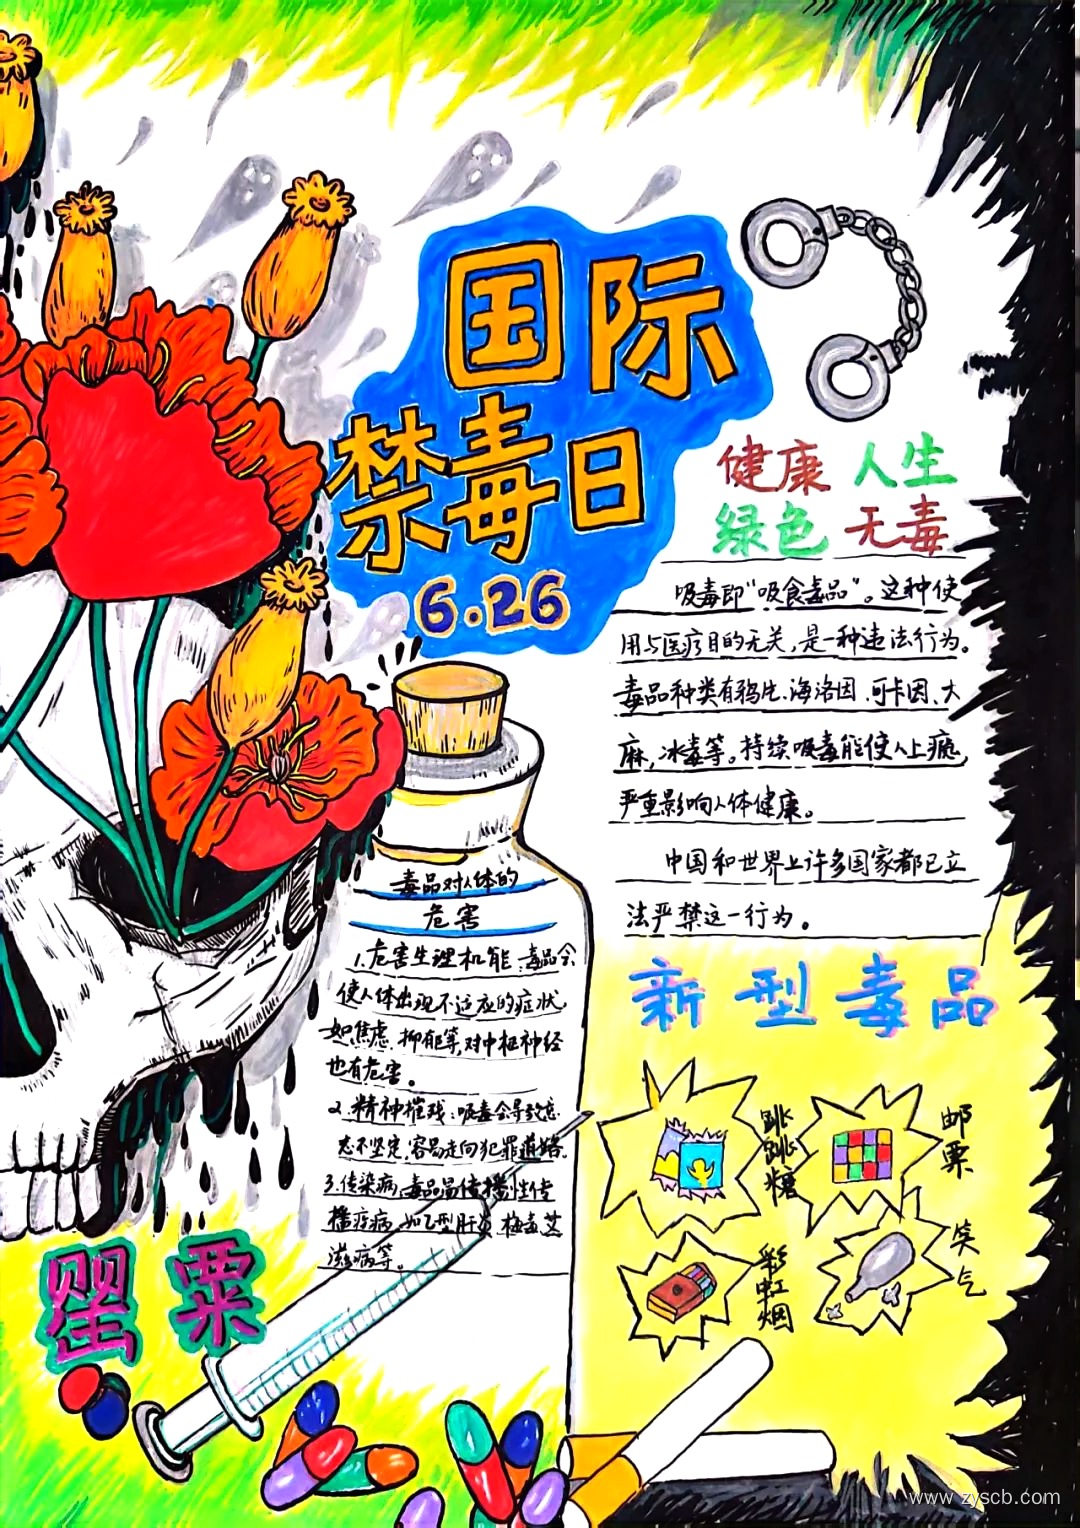 国际
禁毒日
6.26
健康人生
绿色无毒
吸毒即"吸食毒品"。这种使
用与医疗目的无关,是一种违法行为。
毒品种类有鸦片、海洛因、可卡因、大
麻,冰毒等。持续吸毒能使人上瘾,
严重影响人体健康。
中国和世界上许多国家都已立
法严禁这一行为。
毒品对人体的
危害
1.危害生理机能:毒品会
使人体出现不适应的症状,
如焦虑、抑郁等,对中枢神经
也有危害。
2.精神摧残:吸毒会导致意
志不坚定,容易走向犯罪道路。
3.传染病:毒品易传播性传
播疫病,如乙型肝炎 梅毒艾
滋病等。
新型毒品
跳跳糖
邮票
彩虹烟
笑气
罂粟
www.zyscb.com